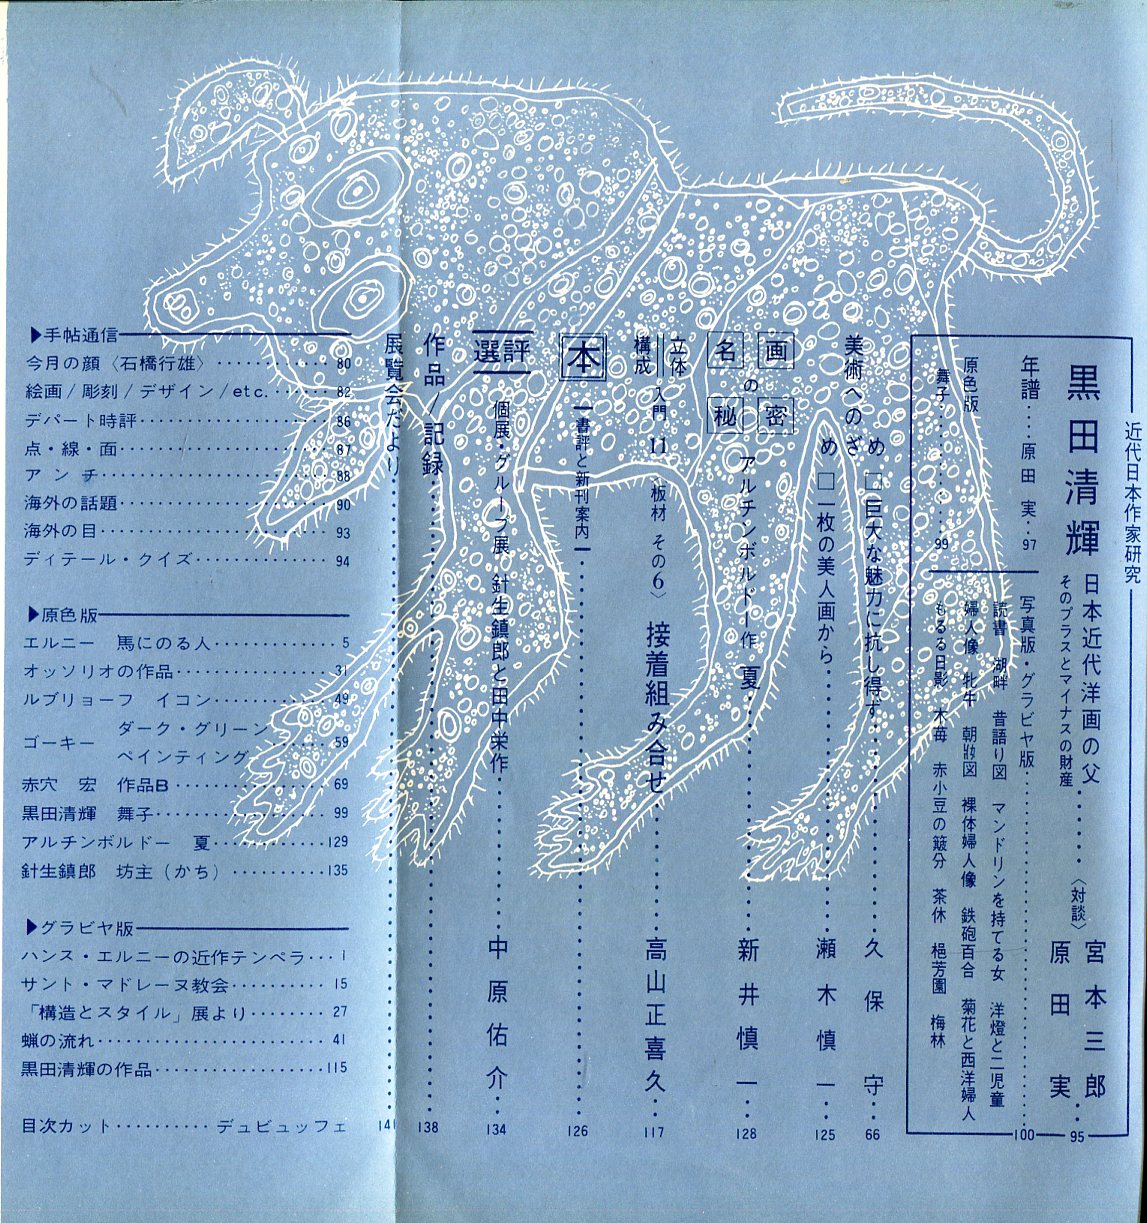 近代日本作家研究
黒田清輝 日本近代洋画の父
そのプラスとマイナスの財産
〈対談〉
宮本三郎
原田実 95
年譜 原田実 97
原色版
舞子 99
写真版・グラビヤ版 100
読書 湖畔 昔語り図 マンドリンを持てる女 洋燈と二児童
婦人像 牝牛 朝妝図 裸体婦人像 鉄砲百合 菊花と西洋婦人
もるる日影 木苺 赤小豆の簸分 茶休 梅林
美術へのざめ
め □巨大な魅力に抗し得ず 久保守 66
め □一枚の美人画から 瀬木慎一 125
名画の秘密 アルチンボルドー作 夏 新井慎一 128
立体構成 入門 11 板材 その6〉 接着組み合せ 高山正喜久 117
本 書評と新刊案内 126
選評 個展・グループ展 針生鎮郎と田中栄作 中原佑介 134
作品/記録 138
展覧会だより 141
▶手帖通信
今月の顔〈石橋行雄〉 80
絵画/彫刻/デザイン/etc. 82
デパート時評 86
点・線・面 87
アンチ 88
海外の話題 90
海外の目 93
ディテール・クイズ 94
▶原色版
エルニー 馬にのる人 5
オッソリオの作品 31
ルブリョーフ イコン 49
ゴーキー ダーク・グリーン ペインティング 59
赤穴 宏 作品B 69
黒田清輝 舞子 99
アルチンボルドー 夏 129
針生鎮郎 坊主(かち) 135
▶グラビヤ版
ハンス・エルニーの近作テンペラ 1
サント・マドレーヌ教会 15
「構造とスタイル」展より 27
蝋の流れ 41
黒田清輝の作品 115
目次カット デュビュッフェ